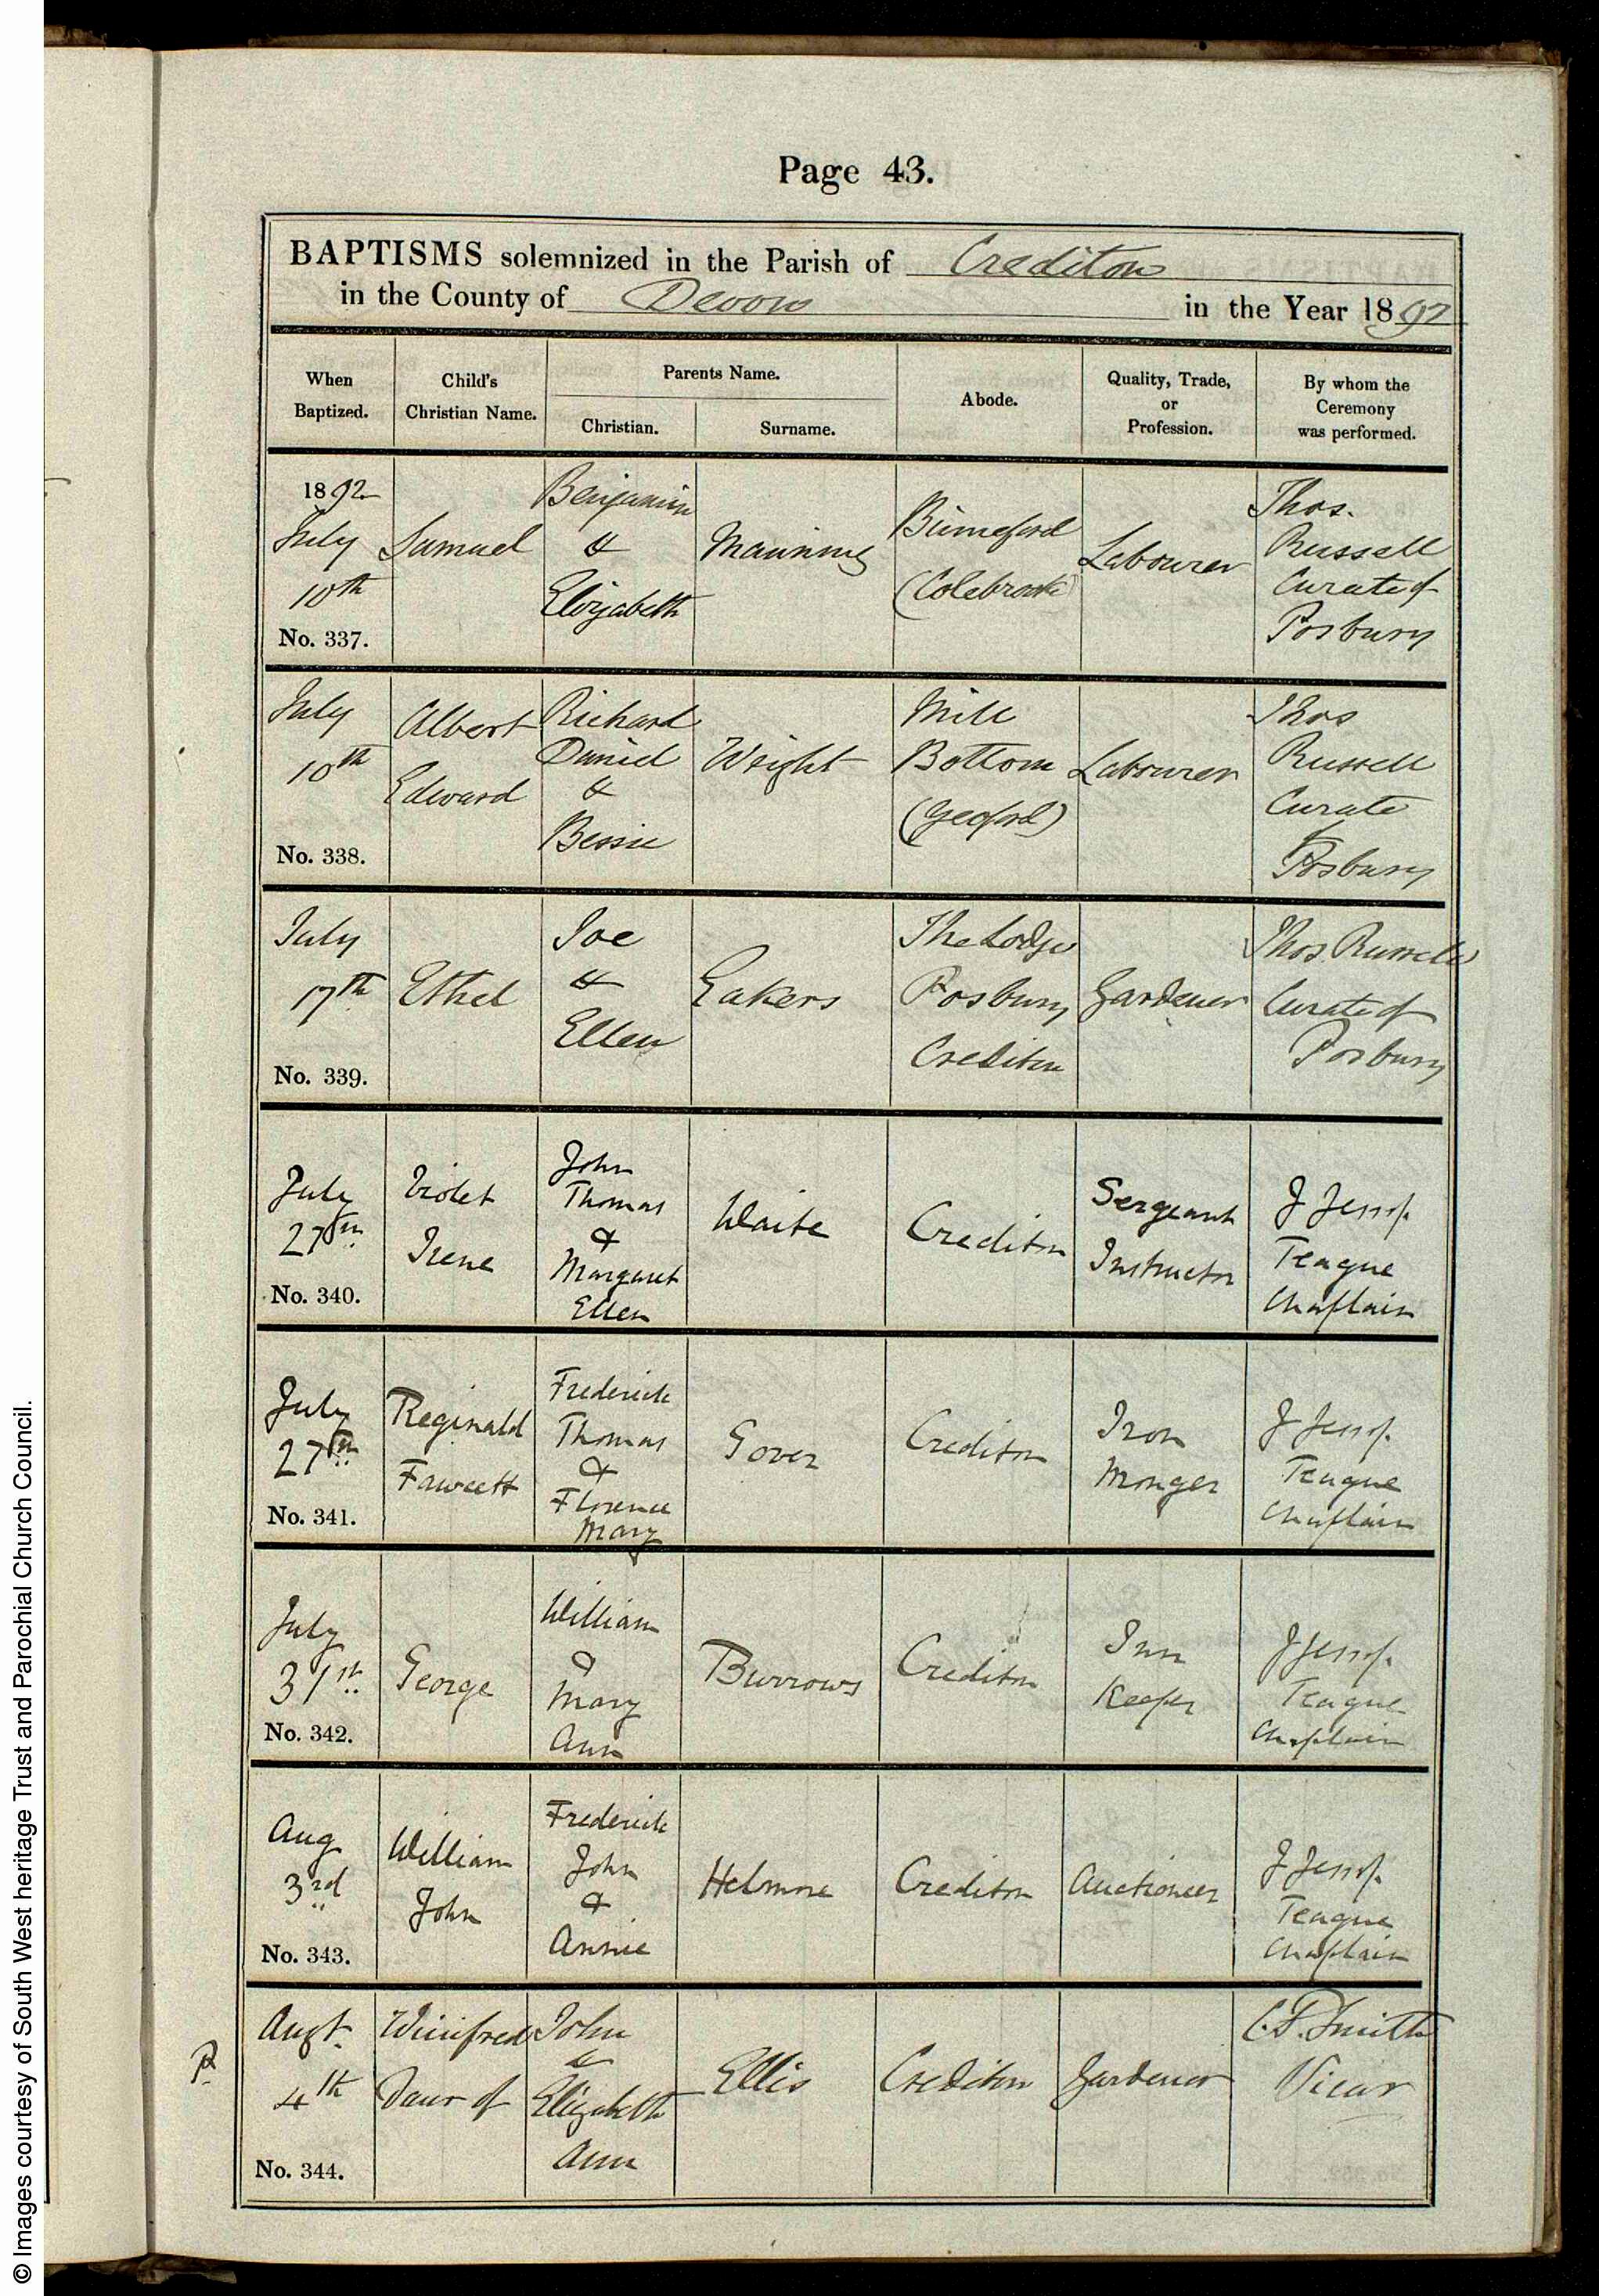 Page 43.
BAPTISMS solemnized in the Parish of Crediton
in the County of Devon in the Year 1892
When Baptized.
Child's Christian Name.
Parents Name.
Christian.
Surname.
Abode.
Quality, Trade, or Profession.
By whom the Ceremony was performed.
1892
July
10th
No. 337.
Samuel
Benjamin
&
Elizabeth
Manning
(Colebrook)
Labourer
Thos.
Russell
Curate of
Posbury
July
10th
No. 338.
Albert
Edward
Richard
Daniel
&
Bessie
Wright
Mill
Bottom
(Yeoford)
Labourer
Thos
Russell
Curate
Posbury
July
17th
No. 339.
Ethel
Joe
&
Ellen
Eakers
The Lodge
Posbury
Crediton
Gardener
Thos. Russell
Curate of
Posbury
July
27th
No. 340.
Violet
Irene
John
Thomas
&
Margaret
Ellen
Waite
Crediton
Sergeant
Instructor
J Jessop
Teague
Chaplain
July
27th
No. 341.
Reginald
Fawcett
Frederick
Thomas
&
Florence
Mary
Gover
Crediton
Iron
Monger
J Jessop
Teague
Chaplain
July
31st
No. 342.
George
William
&
Mary
Ann
Burrows
Crediton
Inn
Keeper
J Jessop
Teague
Chaplain
Aug
3rd
No. 343.
William
John
Frederick
John
&
Annie
Helmore
Crediton
Auctioneer
J Jessop
Teague
Chaplain
P.
Augt.
4th
No. 344.
Winifred
Daur of
John
&
Elizabeth
Ann
Ellis
Crediton
Gardener
C.P. Smith
Vicar
© Images courtesy of South West heritage Trust and Parochial Church Council.